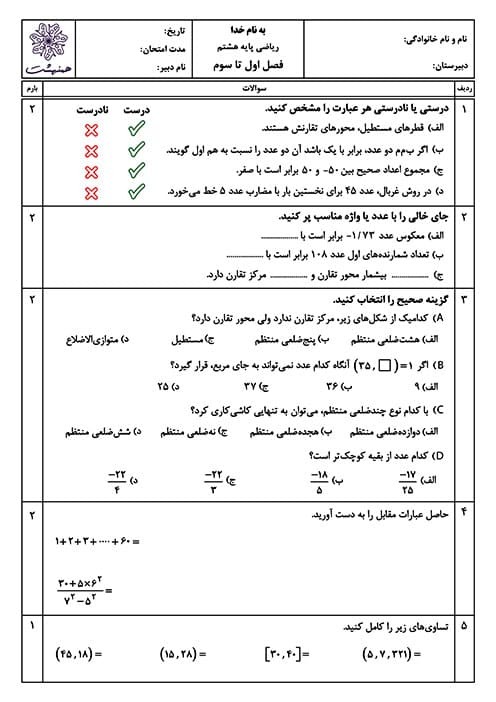 به نام خدا
نام و نام خانوادگی:
ریاضی پایه هشتم
تاریخ:
مدت امتحان:
دبیرستان:
فصل اول تا سوم
نام دبیر:
همیشت
ردیف سوالات بارم
۱ درستی یا نادرستی هر عبارت را مشخص کنید. درست نادرست ۲
الف) قطرهای مستطیل، محورهای تقارنش هستند.
ب) اگر ب‌م‌م دو عدد، برابر با یک باشد آن دو عدد را نسبت به هم اول گویند.
ج) مجموع اعداد صحیح بین ۵۰- و ۵۰ برابر است با صفر.
د) در روش غربال، عدد ۴۵ برای نخستین بار با مضارب عدد ۵ خط می‌خورد.
۲ جای خالی را با عدد یا واژه مناسب پر کنید. ۲
الف) معکوس عدد ۱/۷۳- برابر است با ..................
ب) تعداد شمارنده‌های اول عدد ۱۰۸ برابر است با ..................
ج) .................. بیشمار محور تقارن و .................. مرکز تقارن دارد.
۳ گزینه صحیح را انتخاب کنید. ۲
A) کدامیک از شکل‌های زیر، مرکز تقارن ندارد ولی محور تقارن دارد؟
الف) هشت‌ضلعی منتظم ب) پنج‌ضلعی منتظم ج) مستطیل د) متوازی‌الاضلاع
B) اگر ۱=(۳۵,□) آنگاه کدام عدد نمی‌تواند به جای مربع، قرار گیرد؟
الف) ۹ ب) ۳۶ ج) ۳۷ د) ۲۵
C) با کدام نوع چندضلعی منتظم، می‌توان به تنهایی کاشی‌کاری کرد؟
الف) دوازده‌ضلعی منتظم ب) هجده‌ضلعی منتظم ج) نه‌ضلعی منتظم د) شش‌ضلعی منتظم
D) کدام عدد از بقیه کوچک‌تر است؟
الف) −۱۷/۲۵ ب) −۱۸/۵ ج) −۲۲/۳ د) −۲۲/۴
۴ حاصل عبارات مقابل را به دست آورید. ۲
۱+۲+۳+····+۶۰=
(۳۰+۵×۶²)/(۷²−۵²)=
۵ تساوی‌های زیر را کامل کنید. ۱
(۴۵,۱۸)= (۱۵,۲۸)= [۳۰,۴۰]= (۵,۷,۳۲۱)=